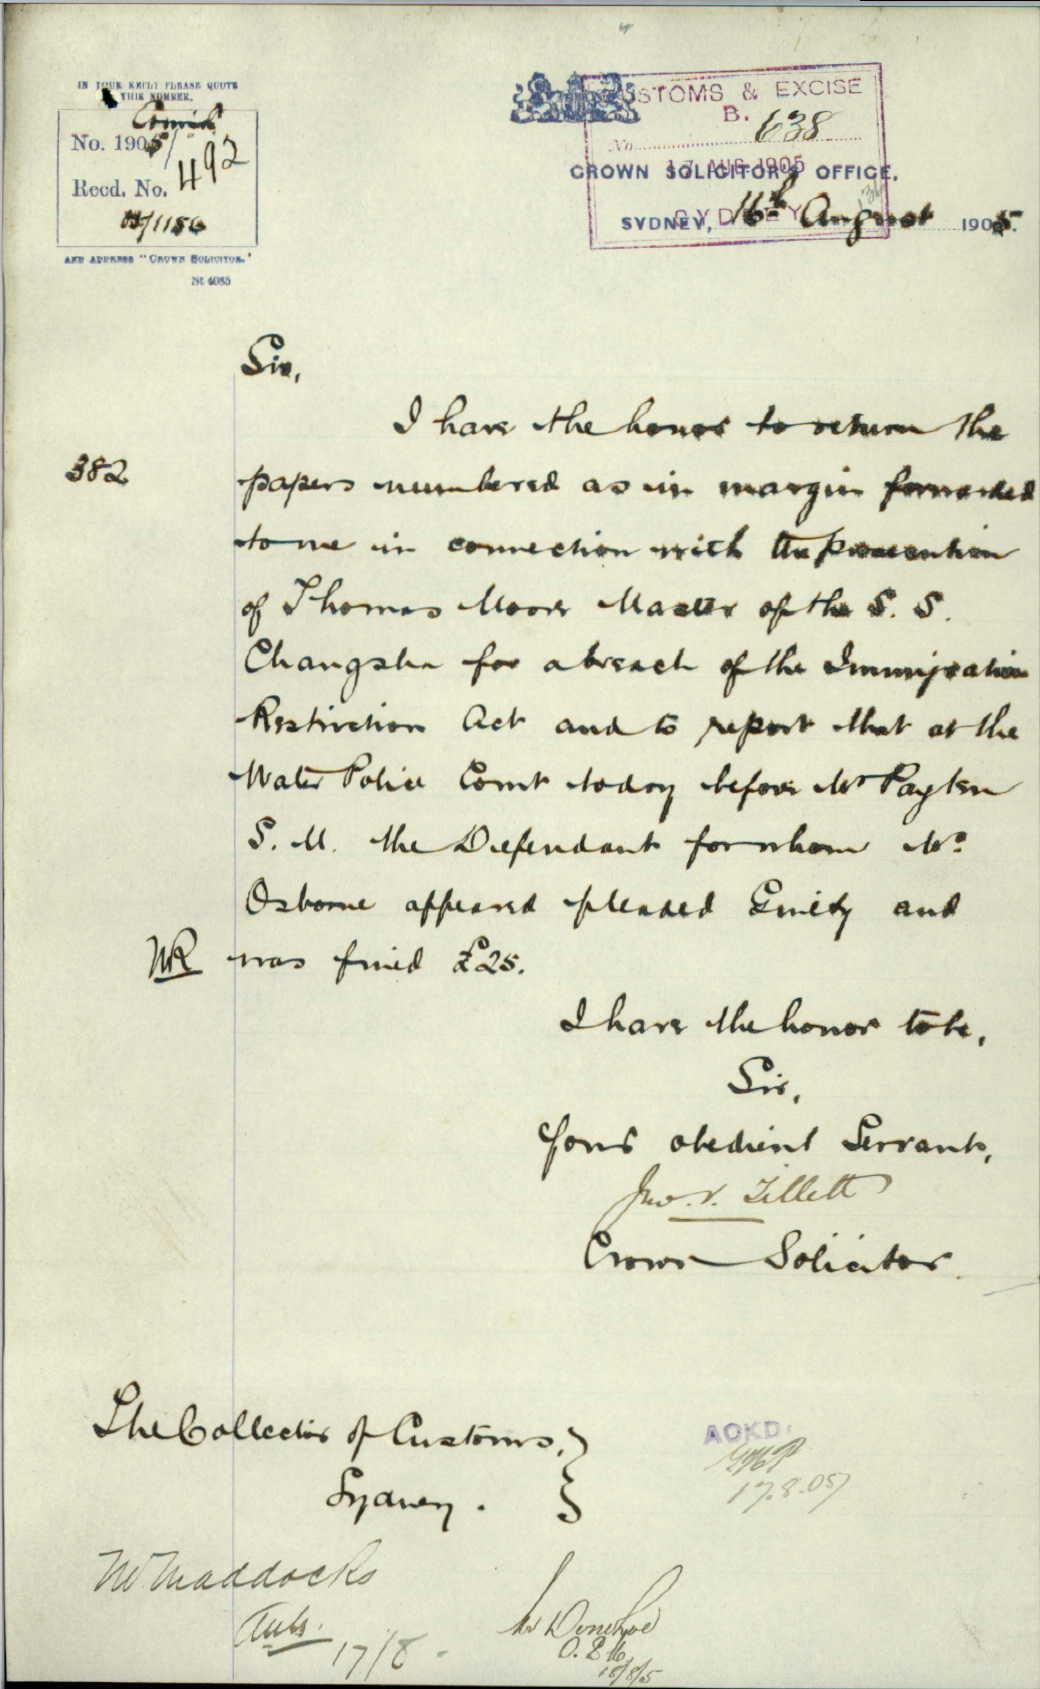 IN YOUR REPLY PLEASE QUOTE
THIS NUMBER.
No. 1905/492
Recd. No.
05/1156
AND ADDRESS "CROWN SOLICITOR."
St 4085
CUSTOMS & EXCISE
B.
No 638
17 AUG 1905
SYDNEY
CROWN SOLICITOR'S OFFICE,
SYDNEY, 16th August 1905.
Sir,
I have the honor to return the
382
papers numbered as in margin forwarded
to me in connection with the prosecution
of Thomas Moore Master of the S. S.
Changsha for a breach of the Immigration
Restriction Act and to report that at the
Water Police Court today before Mr Payten
S. M. the Defendant for whom Mr
Osborne appeared pleaded Guilty and
was fined £25.
I have the honor to be,
Sir,
Your obedient Servant,
Jno. V. Tillett
Crown Solicitor
The Collector of Customs,
Sydney.
ACKD.
17.8.05
Mr Maddocks
17/8
Mr Donohoe
18/8/5